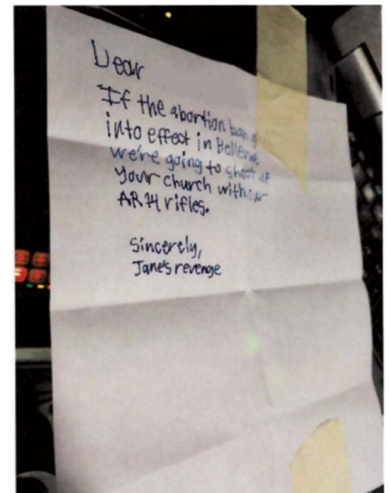 Dear
If the abortion ban
into effect in Bellevue,
we're going to shoot up
your church with our
AR14 rifles.
Sincerely,
Jane's revenge